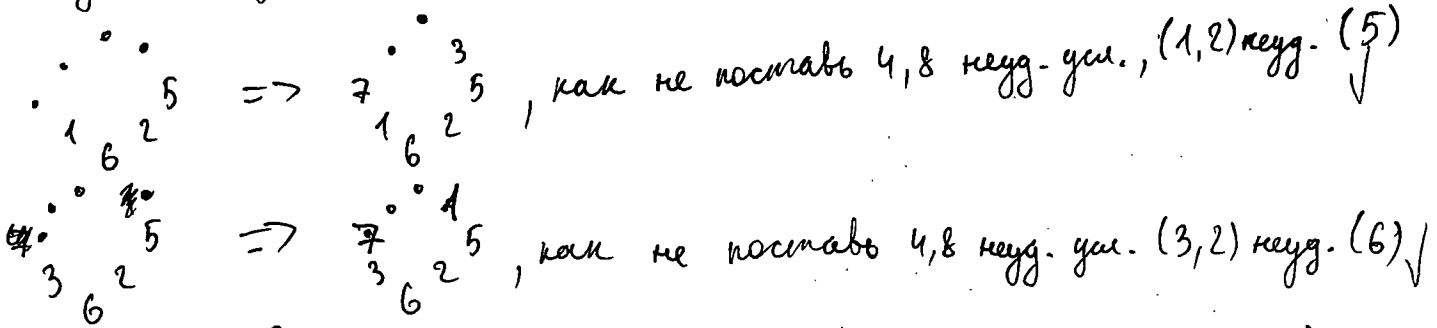 5 1 6 2 => 7 3 5 1 6 2 , как не поставь 4,8 неуд. усл., (1,2) неуд. (5)
5 3 6 2 => 7 1 5 3 6 2 , как не поставь 4,8 неуд. усл. (3,2) неуд. (6)